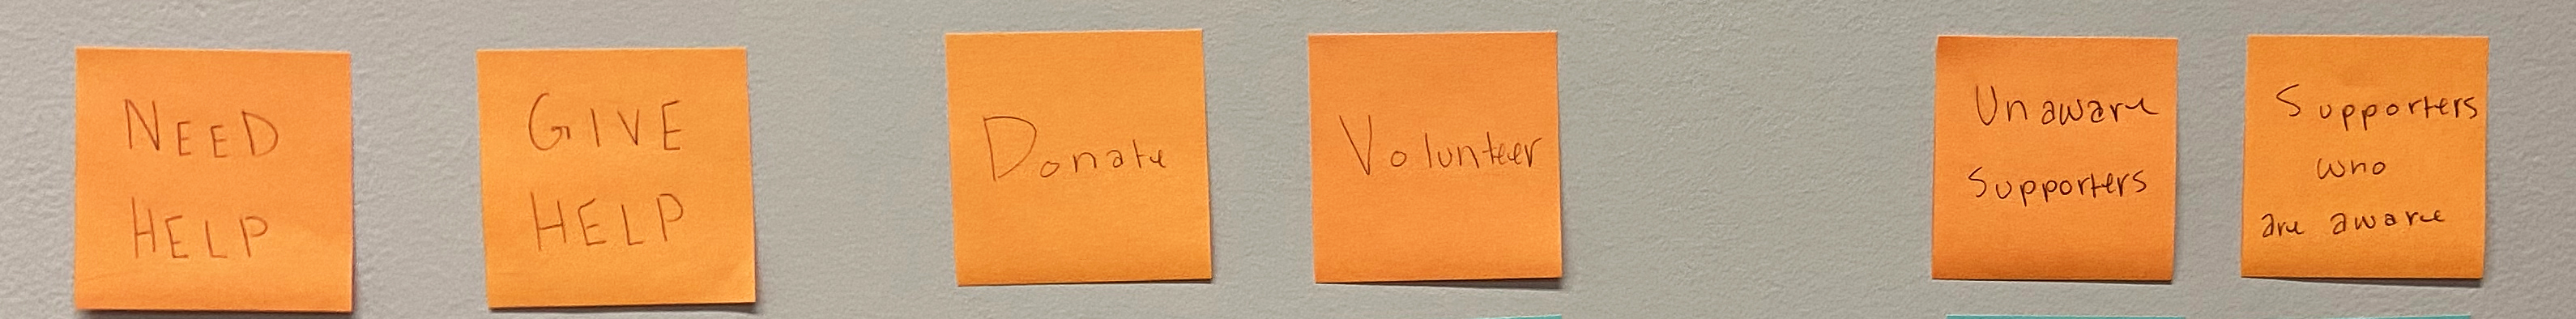 NEED
HELP
GIVE
HELP
Donate
Volunteer
Unaware
Supporters
Supporters
who
are aware